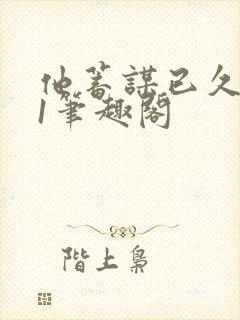 他蓄謀已久
1筆趣閣
階上梟